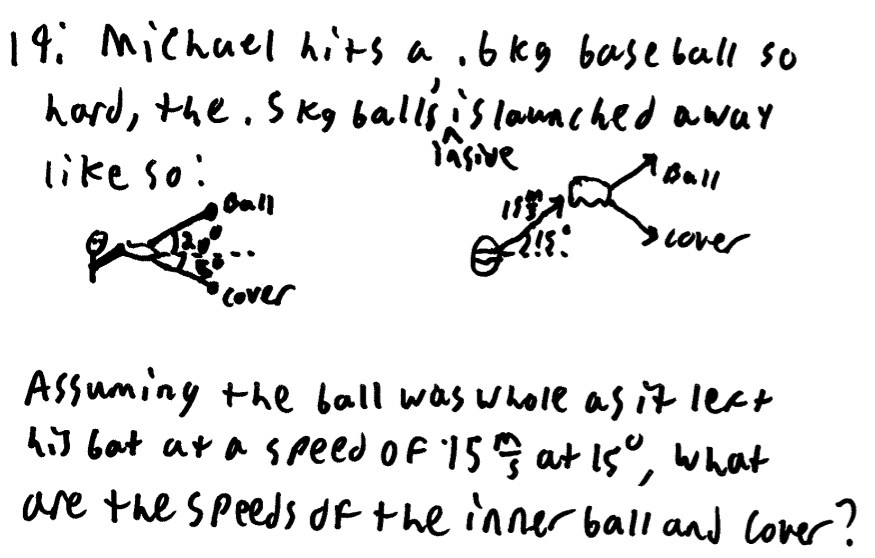 19: Michael hits a .6kg baseball so
hard, the .5kg ball's inside is launched away
like so:
Ball
20°
5°
Cover
15 m/s
15°
Ball
Cover
Assuming the ball was whole as it left
his bat at a speed of 15 m/s at 15°, what
are the speeds of the inner ball and cover?